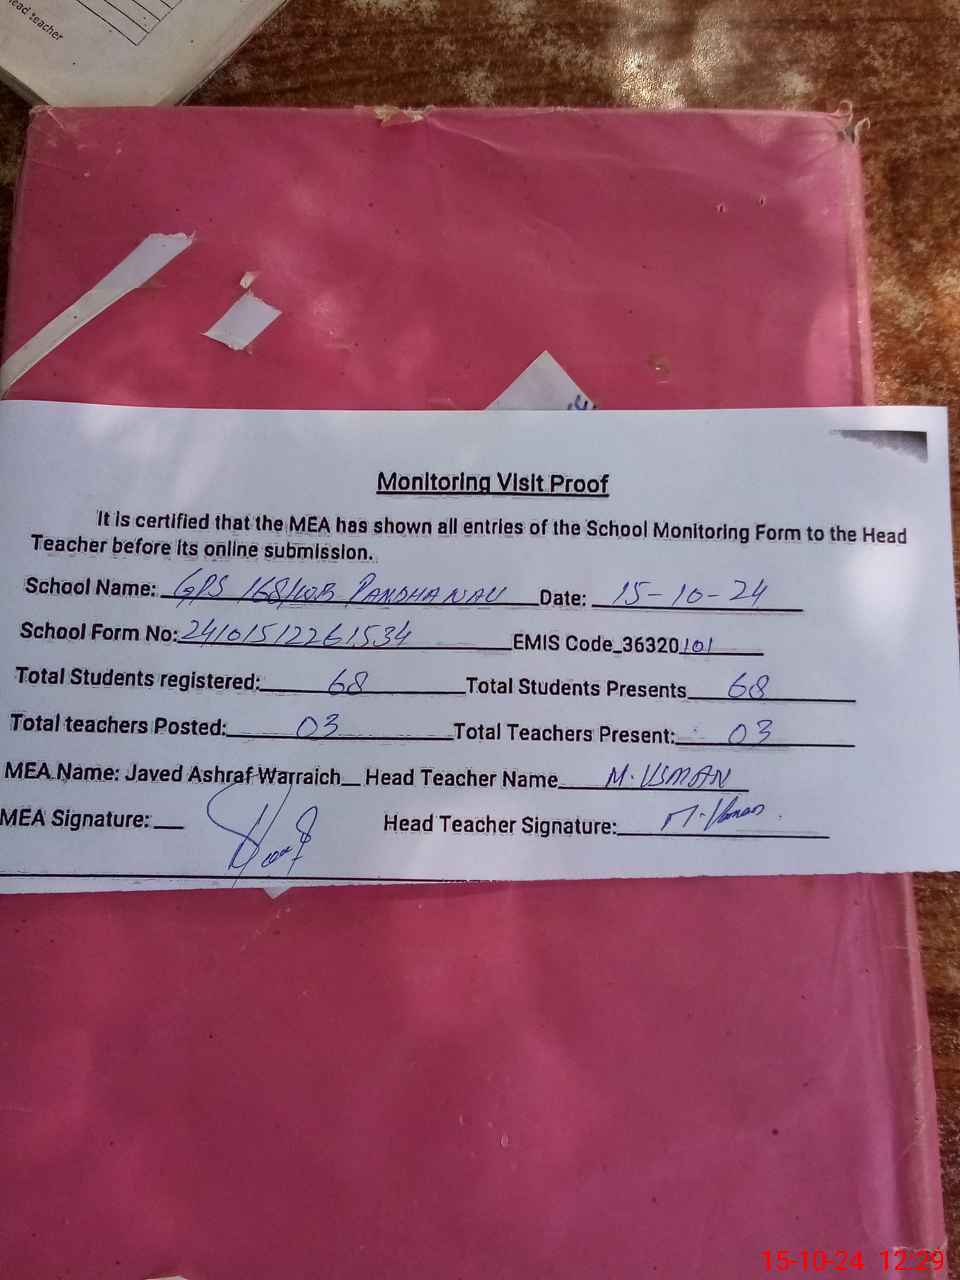 ead teacher
Monitoring Visit Proof
It is certified that the MEA has shown all entries of the School Monitoring Form to the Head
Teacher before its online submission.
School Name: GPS 168/WB PANDHANAU Date: 15-10-24
School Form No: 24101512261534 EMIS Code_36320101
Total Students registered: 68 Total Students Presents 68
Total teachers Posted: 03 Total Teachers Present: 03
MEA Name: Javed Ashraf Warraich Head Teacher Name M. USMAN
MEA Signature: Head Teacher Signature: M. Usman
15-10-24 12:29